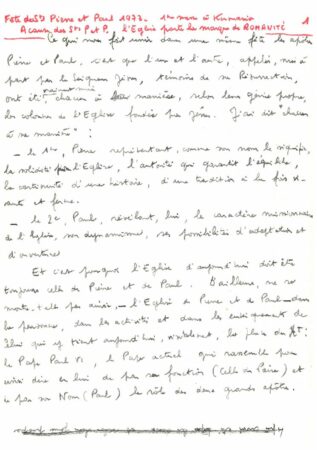 Fête des Sts Pierre et Paul 1977. 1ère messe à Kumamio 1
A cause des Sts P. et P., l'Eglise porte la marque de ROMANITÉ
Ce qui nous fait unir dans une même fête les apôtres
Pierre et Paul, c'est que l'un et l'autre, appelés, mis à
part par le Seigneur Jésus, témoins de sa Résurrection,
ont été vraiment chacun à sa manière, selon leur génie propre,
les colonnes de l'Eglise fondée par Jésus. J'ai dit "chacun
à sa manière" :
- le 1er, Pierre représentant, comme son nom le signifie,
la solidité de l'Eglise, l'autorité qui garantit l'équilibre,
la continuité d'une histoire, d'une tradition à la fois vi-
vante et ferme.
- le 2e, Paul, révélant, lui, le caractère missionnaire
de l'Eglise, son dynamisme, ses possibilités d'adaptation et
d'ouverture.
Et c'est pourquoi l'Eglise d'aujourd'hui doit être
toujours celle de Pierre et de Paul. D'ailleurs, ne se
montre-t-elle pas ainsi, - l'Eglise de Pierre et de Paul - dans
la personne, dans les activités et dans les enseignements de
celui qui y tient aujourd'hui, visiblement, la place du Xt :
le Pape Paul VI, le Pape actuel qui rassemble pour
ainsi dire en lui de par sa fonction (celle de Pierre) et
de par son Nom (Paul) le rôle des deux grands apôtres.